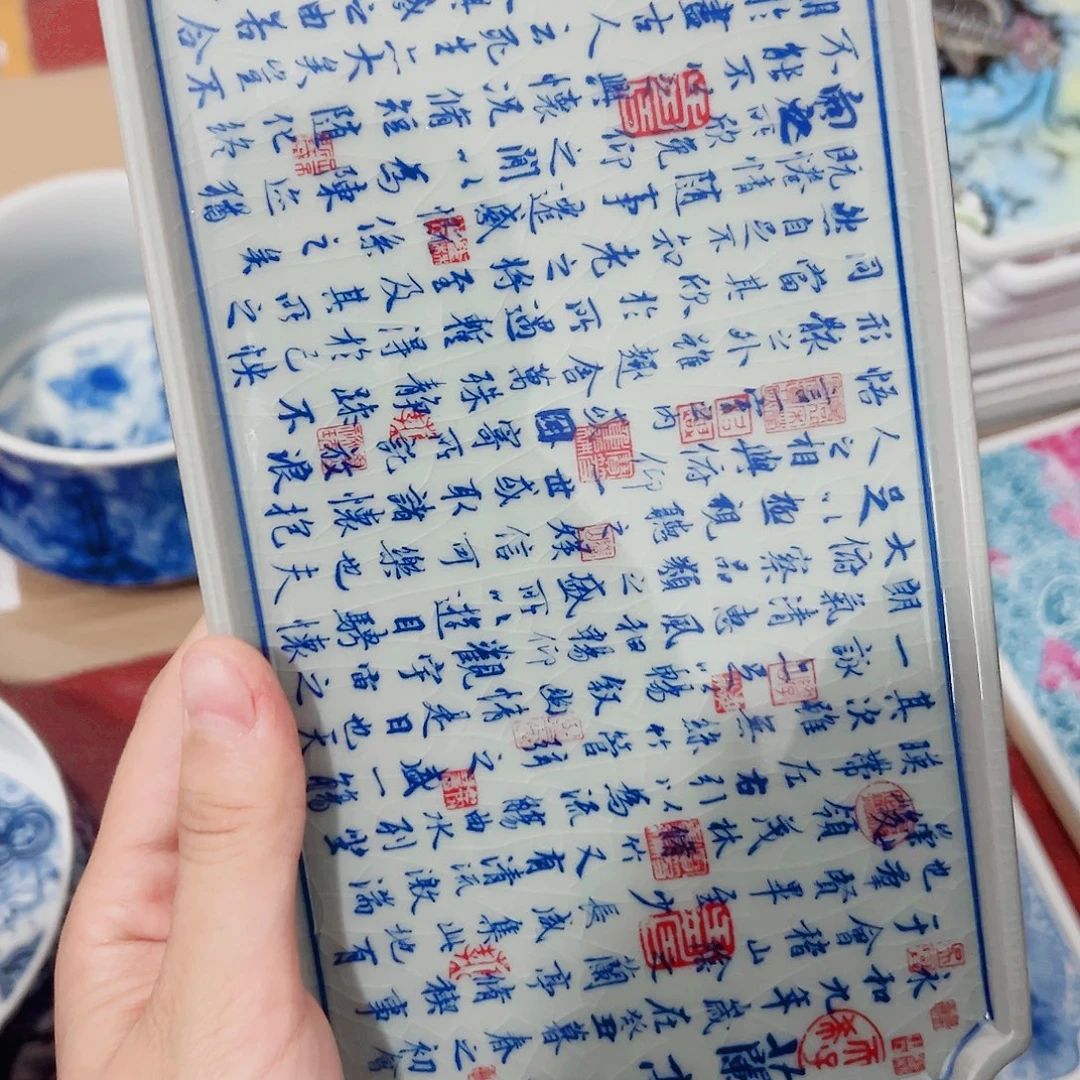 永和九年歲在癸丑暮春之初會
于會稽山陰之蘭亭脩禊事
也羣賢畢至少長咸集此地有
領茂林脩竹又有清流激湍
暎帶左右引以為流觴曲水列坐
其次雖無絲竹管弦之盛一觴
一詠亦足以暢敘幽情是日也天
朗氣清惠風和暢仰觀宇宙之
大俯察品類之盛所以遊目騁懷
足以極視聽之娛信可樂也夫
人之相與俯仰一世或取諸懷抱
悟言一室之內或因寄所託放浪
形骸之外雖趣舍萬殊靜躁不
同當其欣於所遇蹔得於己快
然自足不知老之將至及其所之
既惓情隨事遷感慨係之矣
向之所欣俛仰之間以為陳迹猶
不能不以之興懷況脩短隨化終
期於盡古人云死生亦大矣豈不
感之由若合